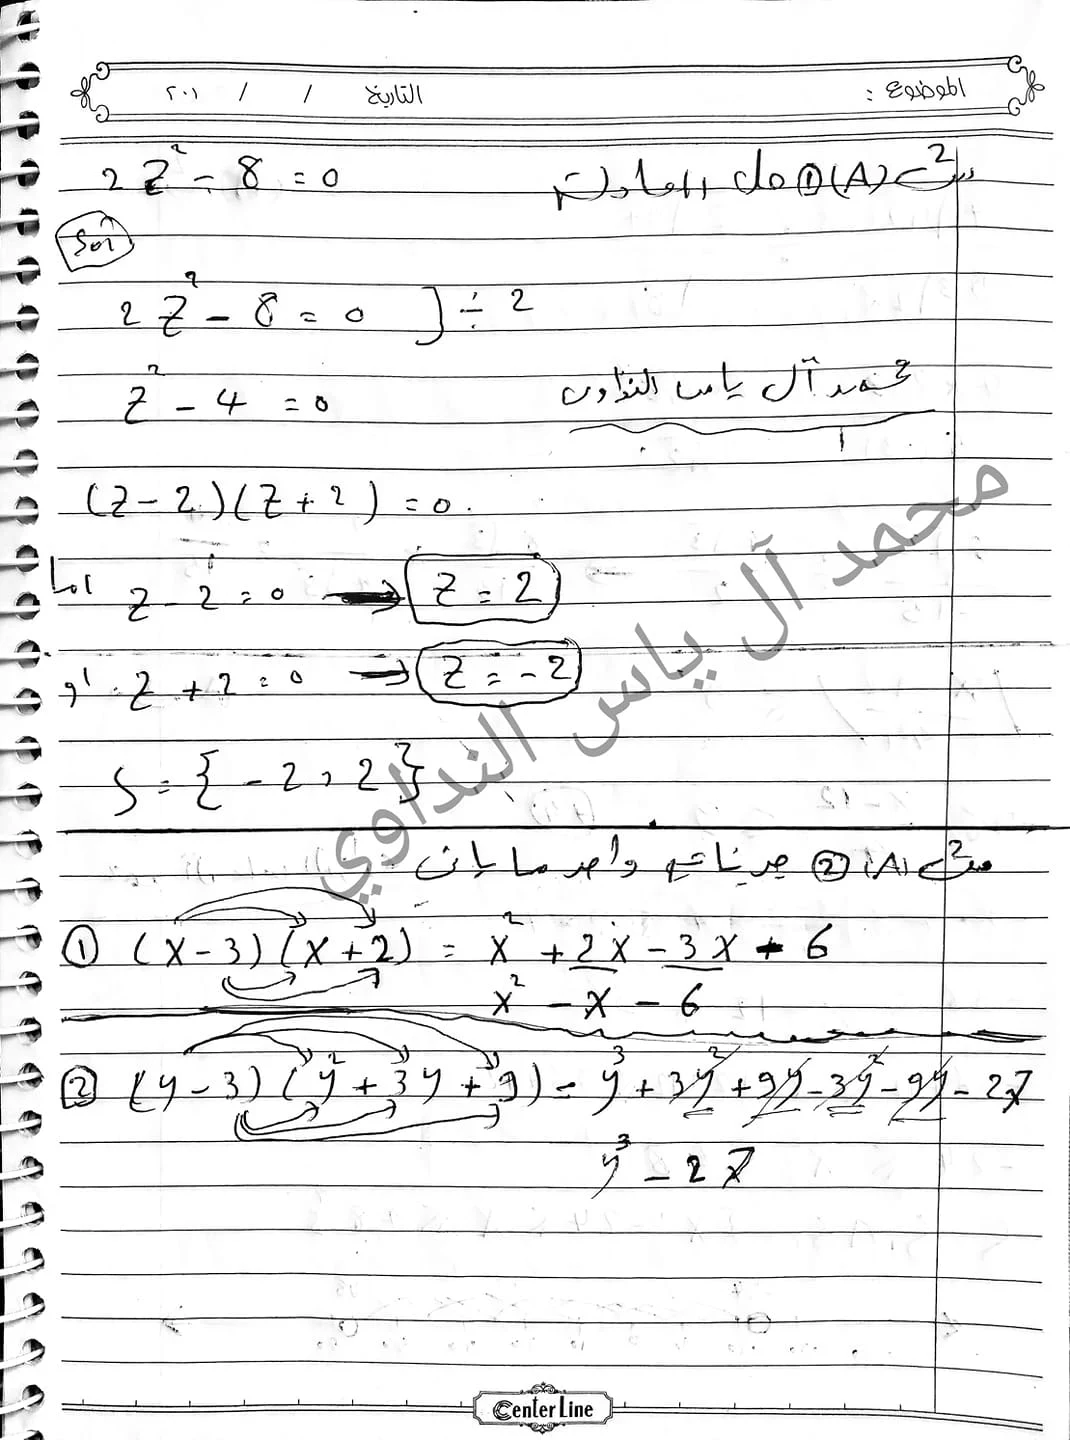 الموضوع : التاريخ / / ٢٠١
س2 (A) ① حل المعادلة 2Z² - 8 = 0
Sol
2Z² - 8 = 0 ] ÷ 2
Z² - 4 = 0
محمد آل ياس النداوي
(Z - 2)(Z + 2) = 0
اما Z - 2 = 0 → Z = 2
او Z + 2 = 0 → Z = -2
S = {-2, 2}
محمد آل ياس النداوي
س2 (A) ② جد ناتج واحد مما يأتي
① (x - 3)(x + 2) = x² + 2x - 3x - 6
x² - x - 6
② (y - 3)(y² + 3y + 9) = y³ + 3y² + 9y - 3y² - 9y - 27
y³ - 27
Center Line